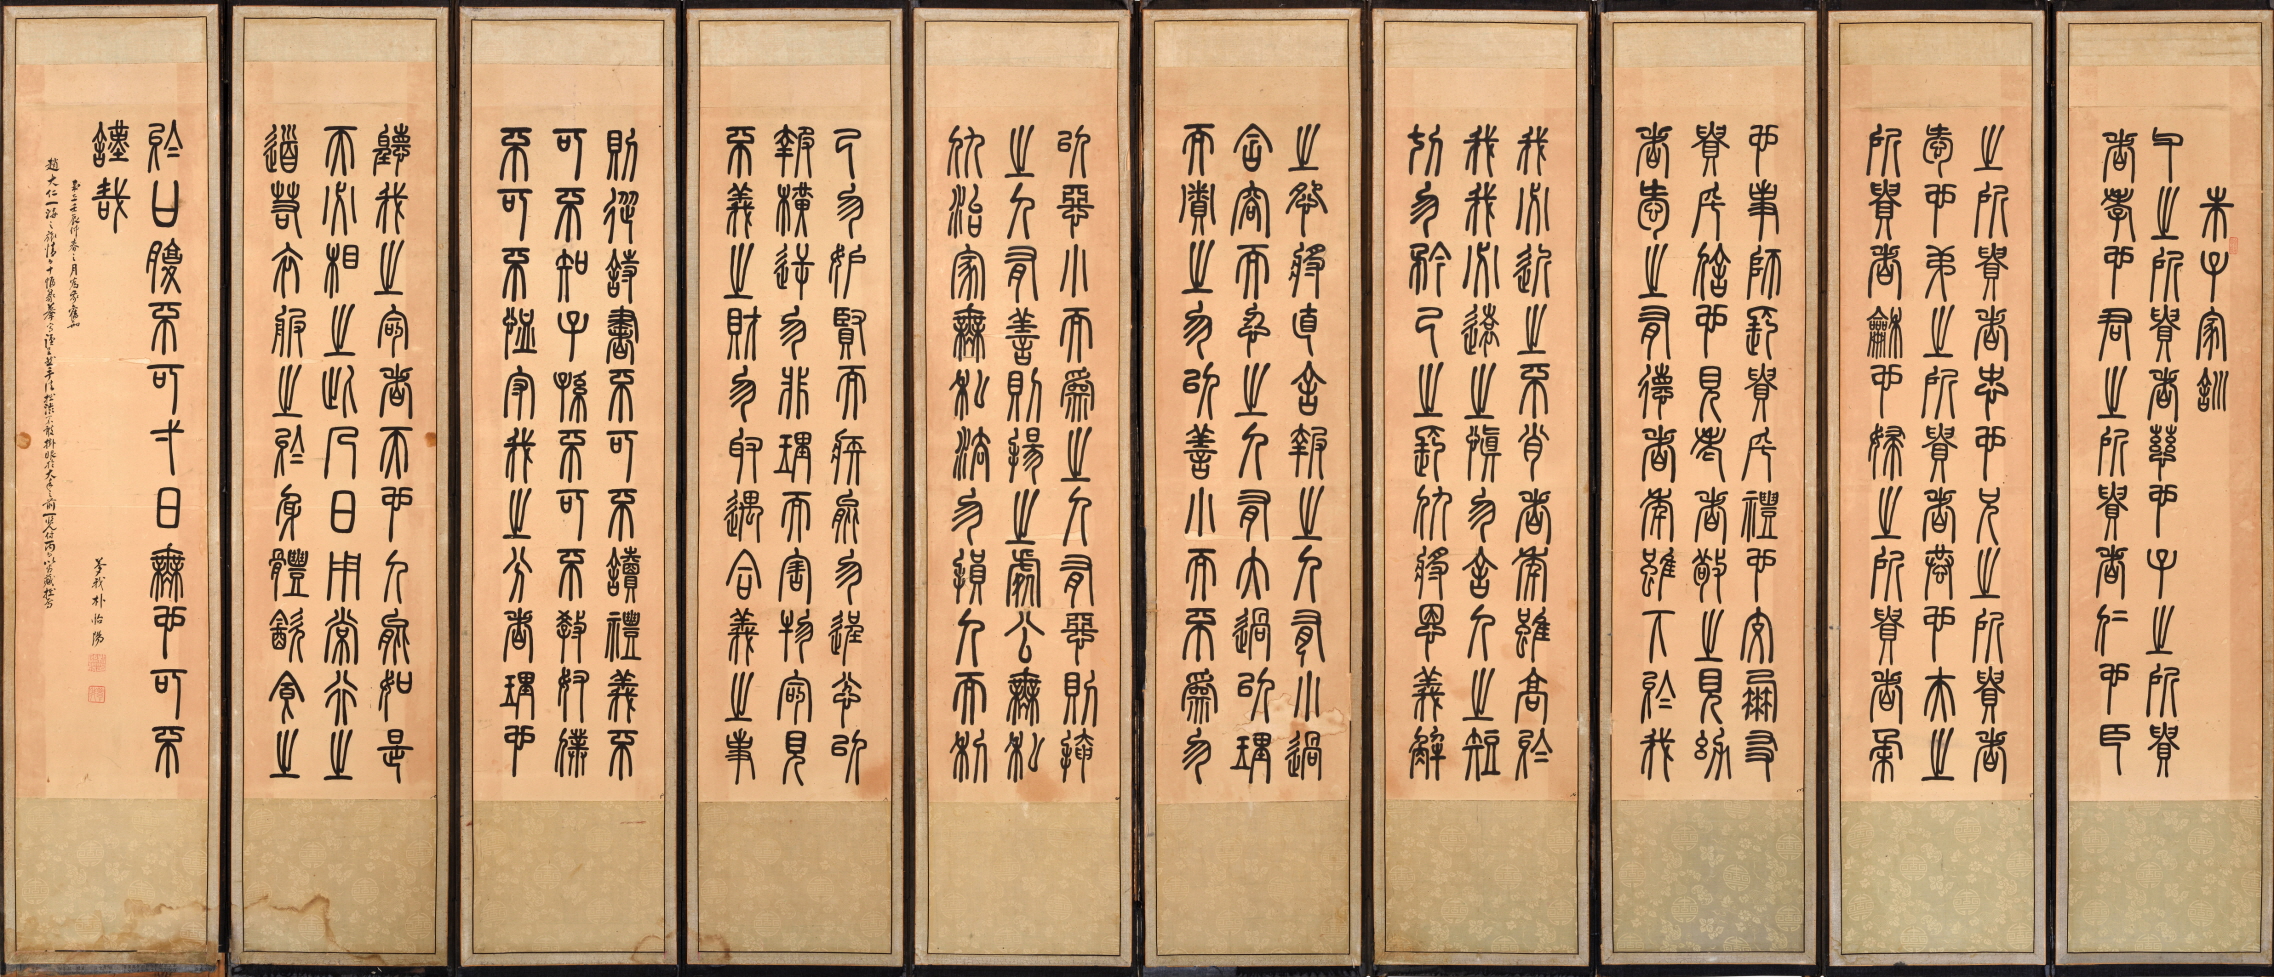 朱子家訓
父之所貴者慈也子之所貴
者孝也君之所貴者仁也臣
之所貴者忠也兄之所貴者
愛也弟之所貴者恭也夫之
所貴者和也婦之所貴者柔
也事師長貴乎禮也交朋友
貴乎信也見老者敬之見幼
者愛之有德者年雖下於我
我必近之不肖者年雖高於
我我必遠之愼勿言人之短
切勿矜己之長仇將恩義解
之怨將直言報之人有小過
含容而忍之人有大過以理
而責之勿以善小而不爲勿
以惡小而爲之人有惡則掩
之人有善則揚之處公無私
仇治家無私法勿損人而利
己勿妒賢而嫉能勿逞忿以
報橫逆勿非理而害物命見
不義之財勿取遇合義之事
則從詩書不可不讀禮義不
可不知子孫不可不敎奴僕
不可不恤守我之分者理也
聽我之命者天也人能如是
天必相之此乃日用常行之
道若衣服之於身體飮食之
於口腹不可一日無也可不
謹哉
壬辰仲春之月爲
趙大仁一海之
朴怡陽